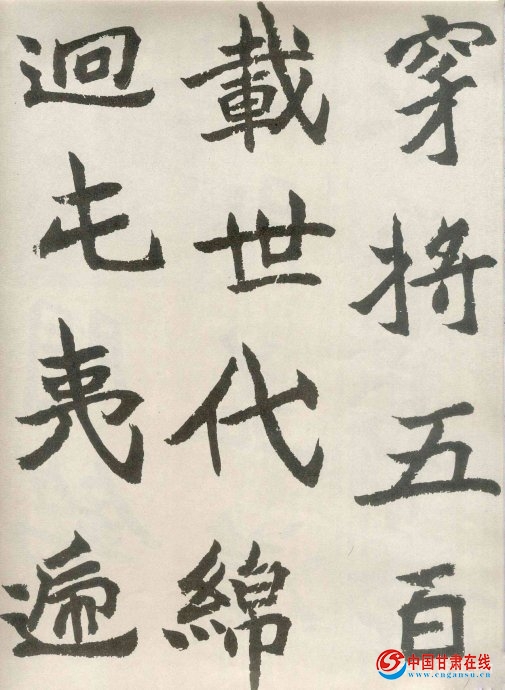 穿將五百
載世代綿
迴屯夷遍
中国甘肃在线
www.cngansu.cn